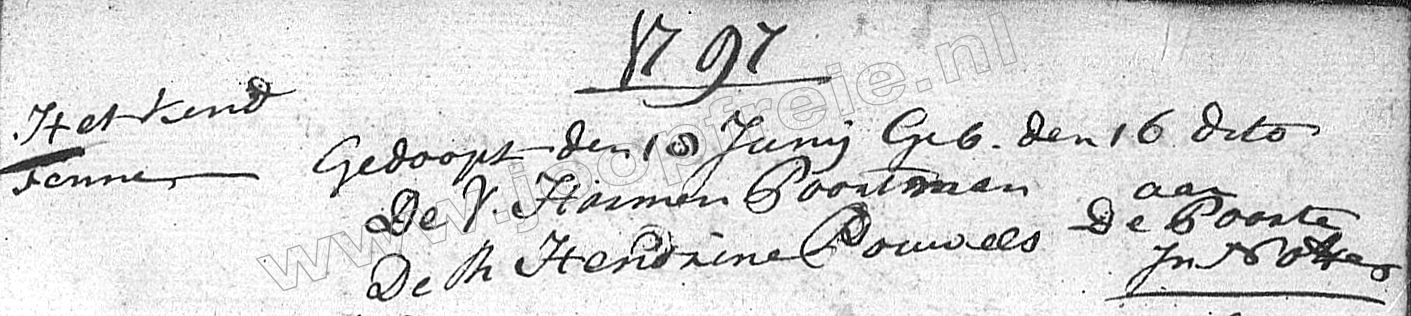 1797
Het kend
Fenne
Gedoopt den 18 Junij Geb. den 16 dito
De V Harmen Poortman aan
De M Hendrine Pouwels De Poorte
In Notter
www.joopfreie.nl